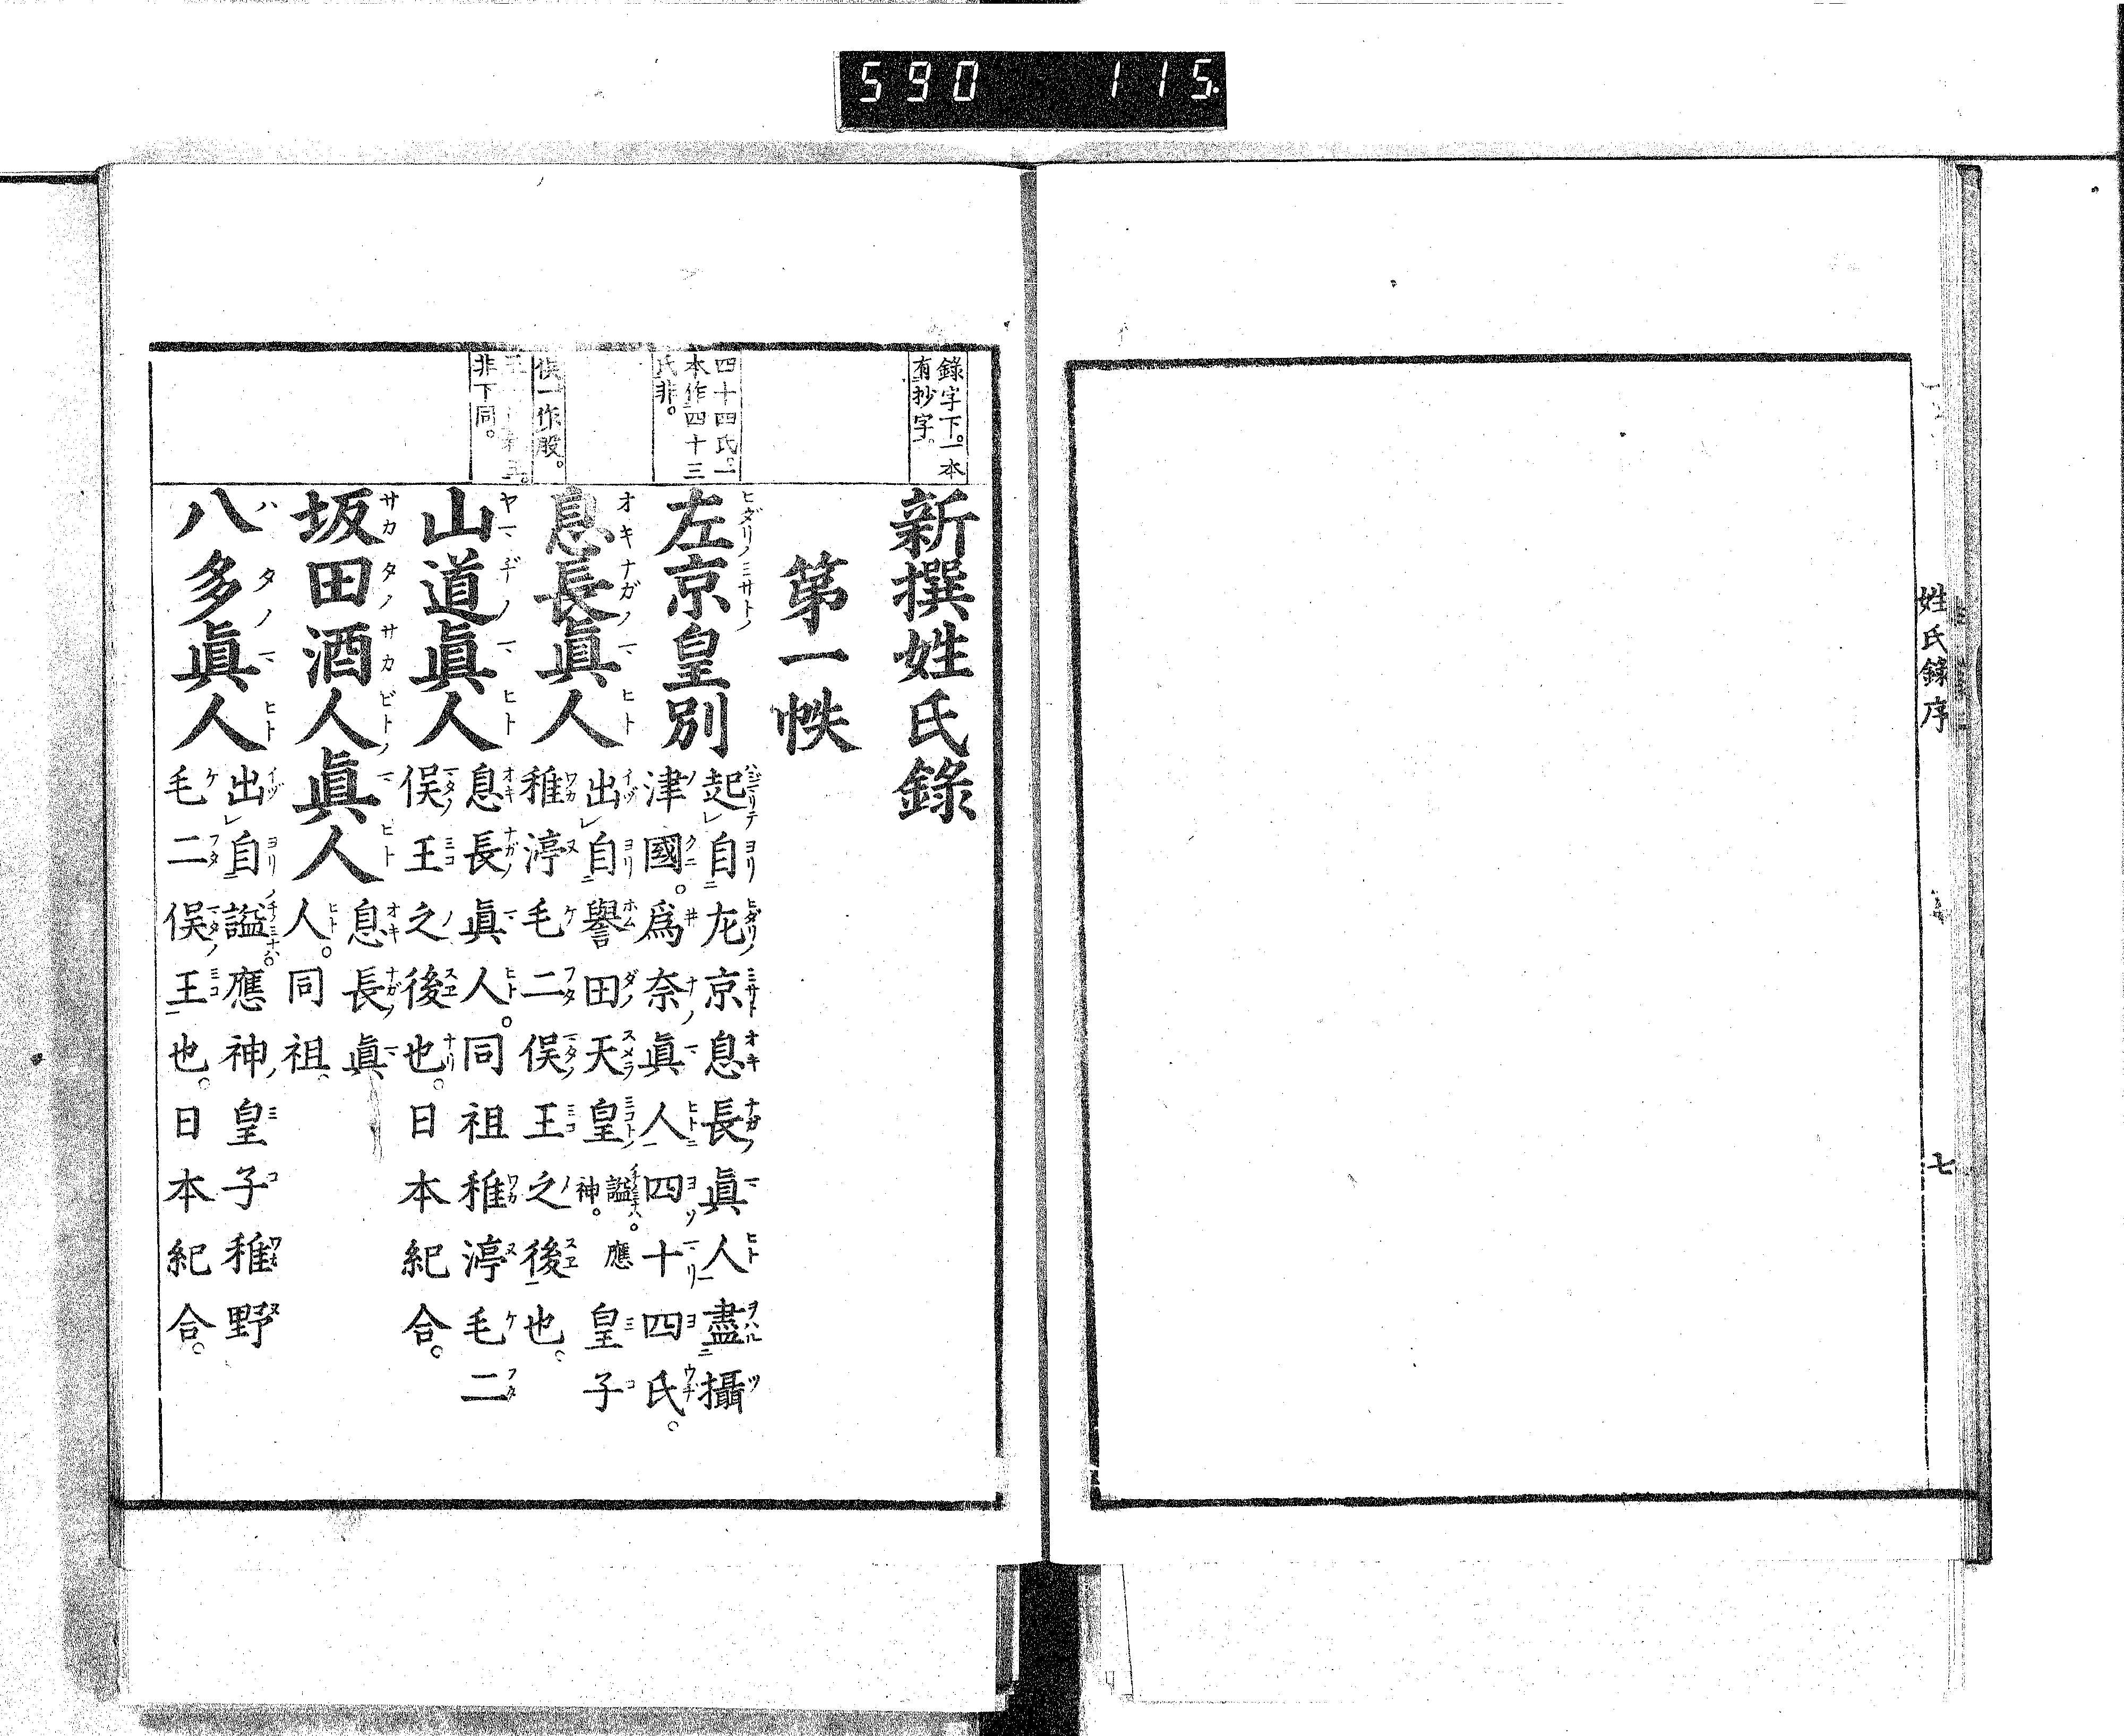 590 115.
姓氏錄序
七
錄字下。一本
有抄字。
四十四氏。一
本作四十三
氏非。
俣一作股。
非下同。
新撰姓氏錄
第一帙
左京皇別
起自左京息長眞人盡攝
津國。爲奈眞人四十四氏。
息長眞人
出自譽田天皇
諡。應
神。
皇子
稚渟毛二俣王之後也。
山道眞人
息長眞人。同祖稚渟毛二
俣王之後也。日本紀合。
坂田酒人眞人
息長眞
人。同祖。
八多眞人
出自諡應神皇子稚野
毛二俣王也。日本紀合。